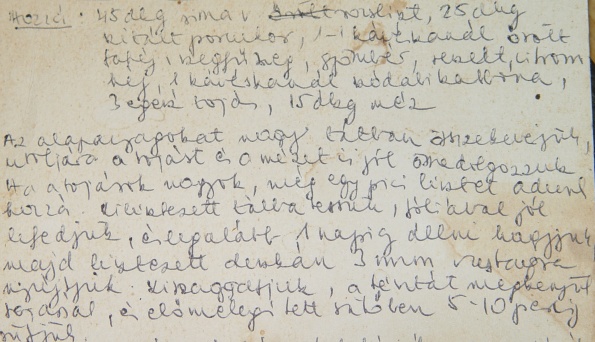 Hozzá: 45 dkg sima v rozsliszt, 25 dkg
kristály porcukor, 1-1 kávéskanál őrölt
fahéj, szegfűszeg, gyömbér, reszelt citrom
héj, 1 kávéskanál szódabikarbóna,
3 egész tojás, 15 dkg méz
Az alapanyagokat nagy tálban összekeverjük,
utoljára a tojást és a mézet is jól összedolgozzuk
Ha a tojások nagyok, még egy pici lisztet adunk
hozzá. Kilisztezett tálba tesszük, fóliával jól
lefedjük, és legalább 1 napig állni hagyjuk
majd lisztezett deszkán 3 mm vastagra
nyújtjuk. Kiszaggatjuk, a tésztát megkenjük
tojással, és előmelegített sütőben 5-10 percig
sütjük.